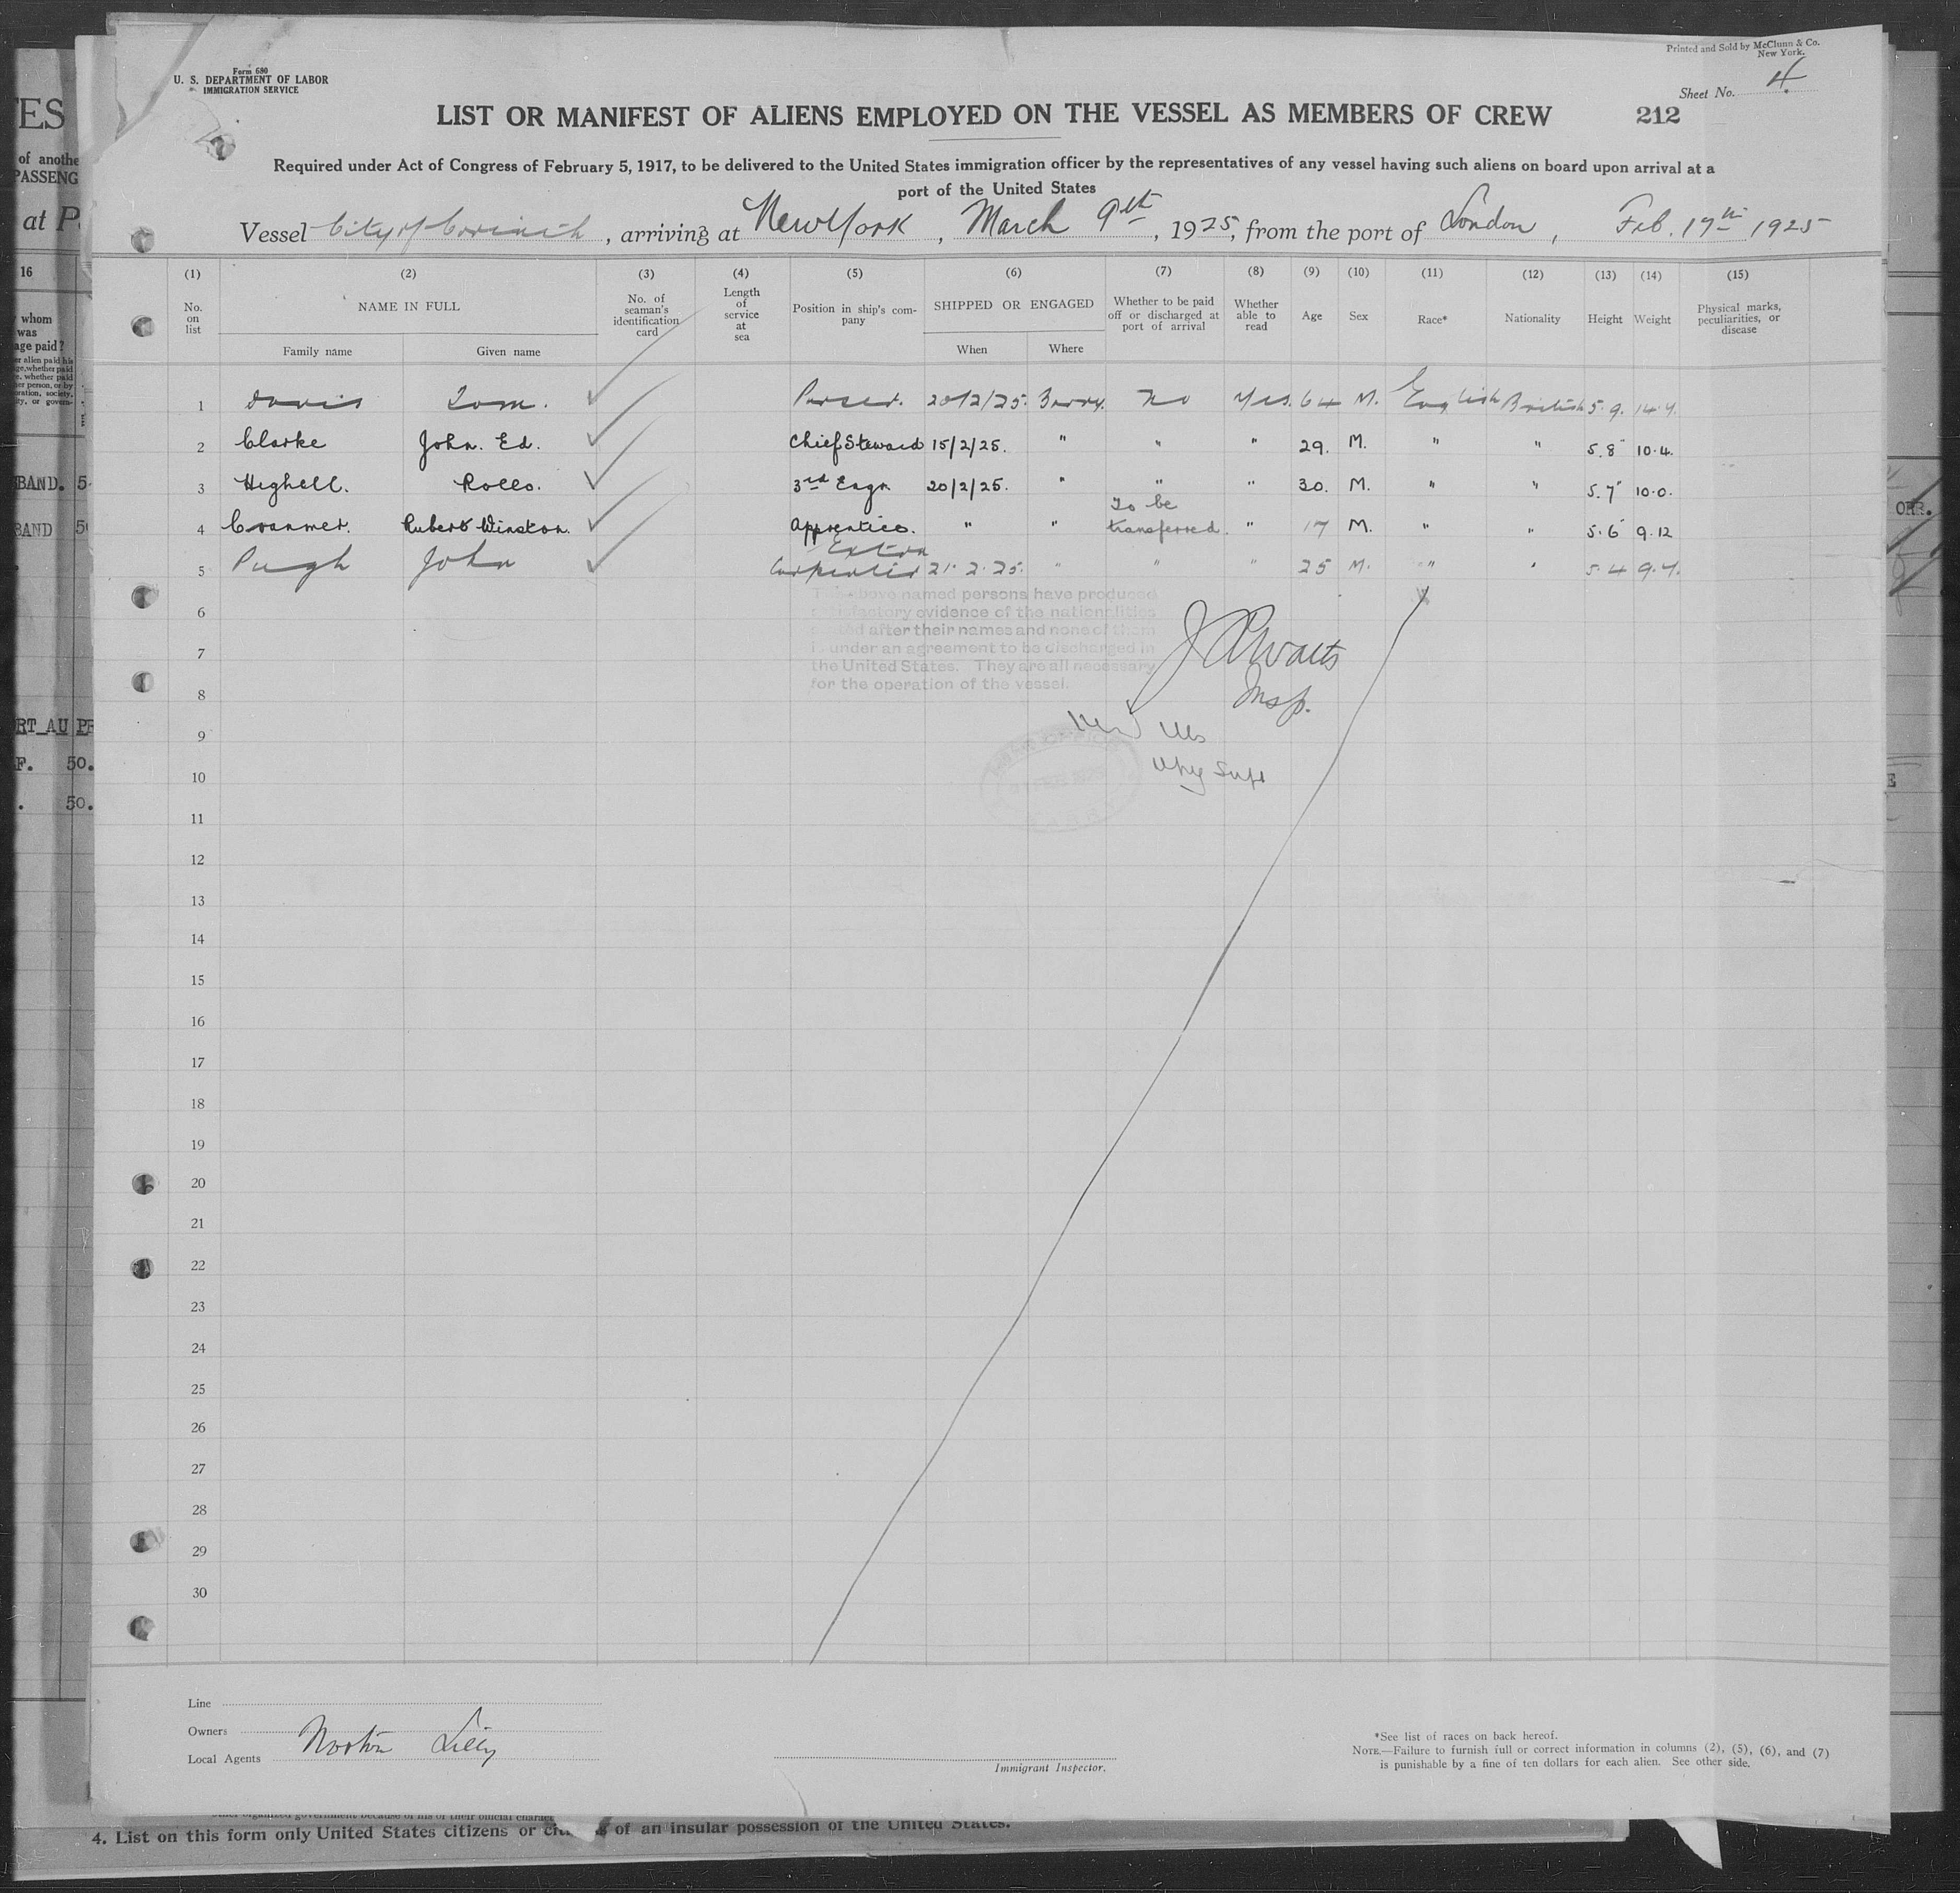 Printed and Sold by McClunn & Co.
New York.
Form 680
U. S. DEPARTMENT OF LABOR
IMMIGRATION SERVICE
Sheet No. 4
LIST OR MANIFEST OF ALIENS EMPLOYED ON THE VESSEL AS MEMBERS OF CREW 212
Required under Act of Congress of February 5, 1917, to be delivered to the United States immigration officer by the representatives of any vessel having such aliens on board upon arrival at a
port of the United States
Vessel City of Corinth, arriving at New York, March 9th, 1925, from the port of London, Feb. 17th 1925
(1) (2) (3) (4) (5) (6) (7) (8) (9) (10) (11) (12) (13) (14) (15)
No. on list NAME IN FULL Family name Given name No. of seaman's identification card Length of service at sea Position in ship's company SHIPPED OR ENGAGED When Where Whether to be paid off or discharged at port of arrival Whether able to read Age Sex Race* Nationality Height Weight Physical marks, peculiarities, or disease
1 Davis Tom. Purser. 20/2/25. Barry. No Yes. 64 M. English British 5.9. 14.4.
2 Clarke John. Ed. Chief Steward 15/2/25. " " " 29. M. " " 5.8" 10.4.
3 Highell. Rollo. 3rd Engr. 20/2/25. " " " 30. M. " " 5.7" 10.0.
4 Cranmer. Rubert Winston. Apprentice. " " To be transferred. " 17 M. " " 5.6" 9.12
5 Pugh John Extra Carpenter 21.2.25. " " " 25 M. " " 5.4 9.7.
The above named persons have produced
satisfactory evidence of the nationalities
stated after their names and none of them
is under an agreement to be discharged in
the United States. They are all necessary
for the operation of the vessel.
Insp.
6
7
8
9
10
11
12
13
14
15
16
17
18
19
20
21
22
23
24
25
26
27
28
29
30
Line
Owners
Local Agents Norton Lilly
Immigrant Inspector.
*See list of races on back hereof.
NOTE.—Failure to furnish full or correct information in columns (2), (5), (6), and (7)
is punishable by a fine of ten dollars for each alien. See other side.
4. List on this form only United States citizens or of an insular possession of the United States.